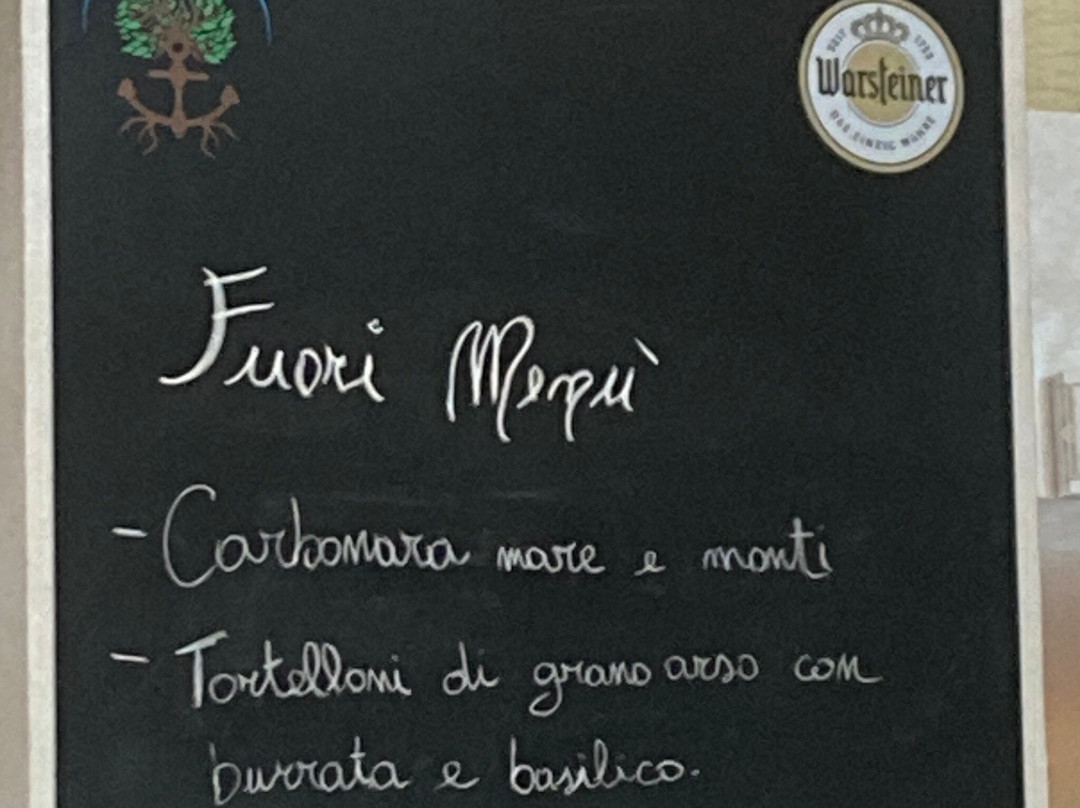 Warsteiner
DAS EINZIG WAHRE
Fuori Menù
- Carbonara mare e monti
- Tortelloni di grano arso con
burrata e basilico.